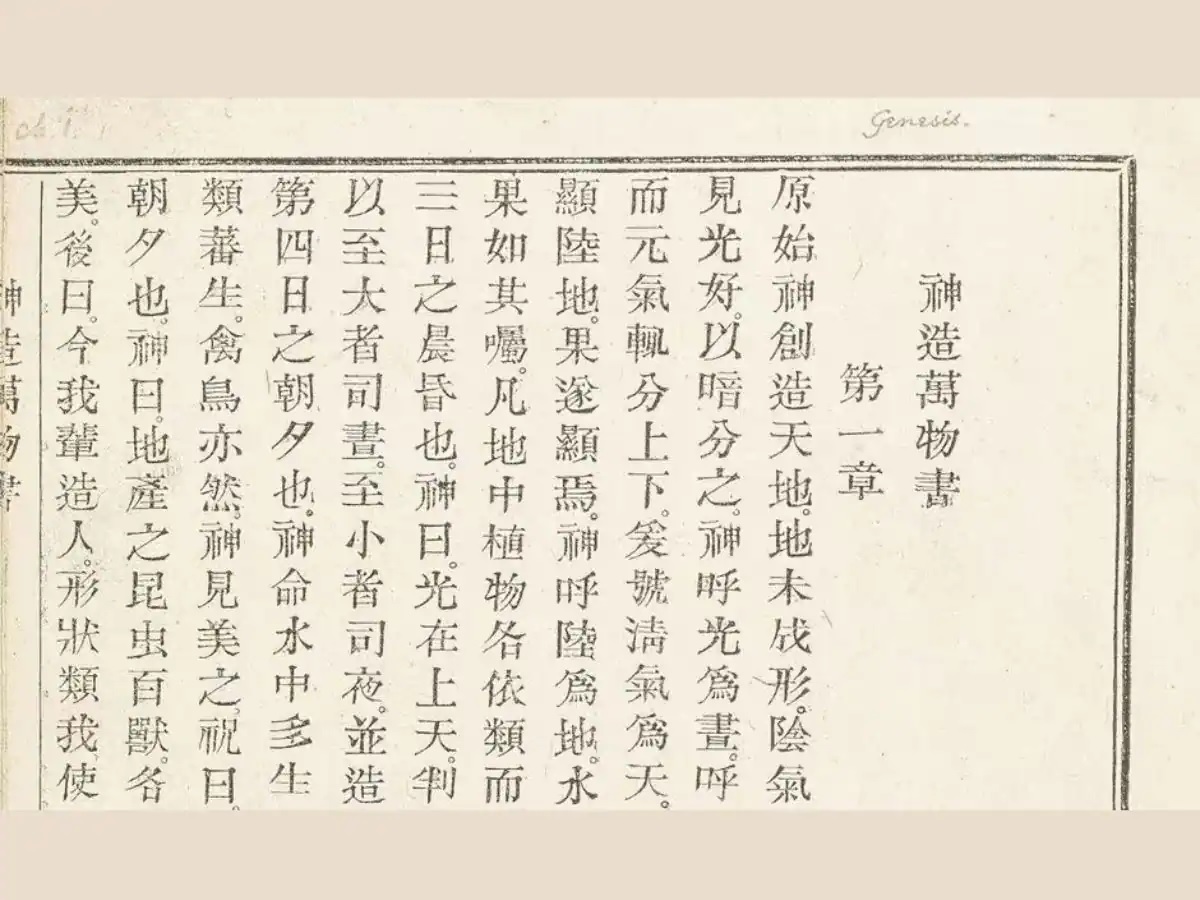 Genesis.
ch. 1.
神造萬物書
第一章
原始神創造天地。地未成形。陰氣
見光好。以暗分之。神呼光爲晝。呼
而元氣輒分上下。爰號淸氣爲天。
顯陸地。果遂顯焉。神呼陸爲地。水
果如其囑。凡地中植物各依類而
三日之晨昏也。神曰。光在上天。判
以至大者司晝。至小者司夜。並造
第四日之朝夕也。神命水中多生
類蕃生。禽鳥亦然。神見美之。祝曰。
朝夕也。神曰。地產之昆虫百獸。各
美。後曰。今我輩造人。形狀類我。使
神造萬物書